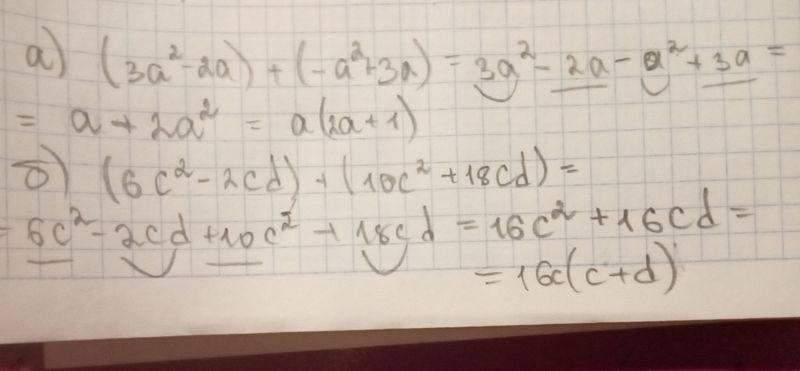 а) (3a²-2a)+(-a²+3a)=3a²-2a-a²+3a=
= a+2a² = a(2a+1)
б) (6c²-2cd)+(10c²+18cd)=
= 6c²-2cd+10c²+18cd = 16c²+16cd=
= 16c(c+d)